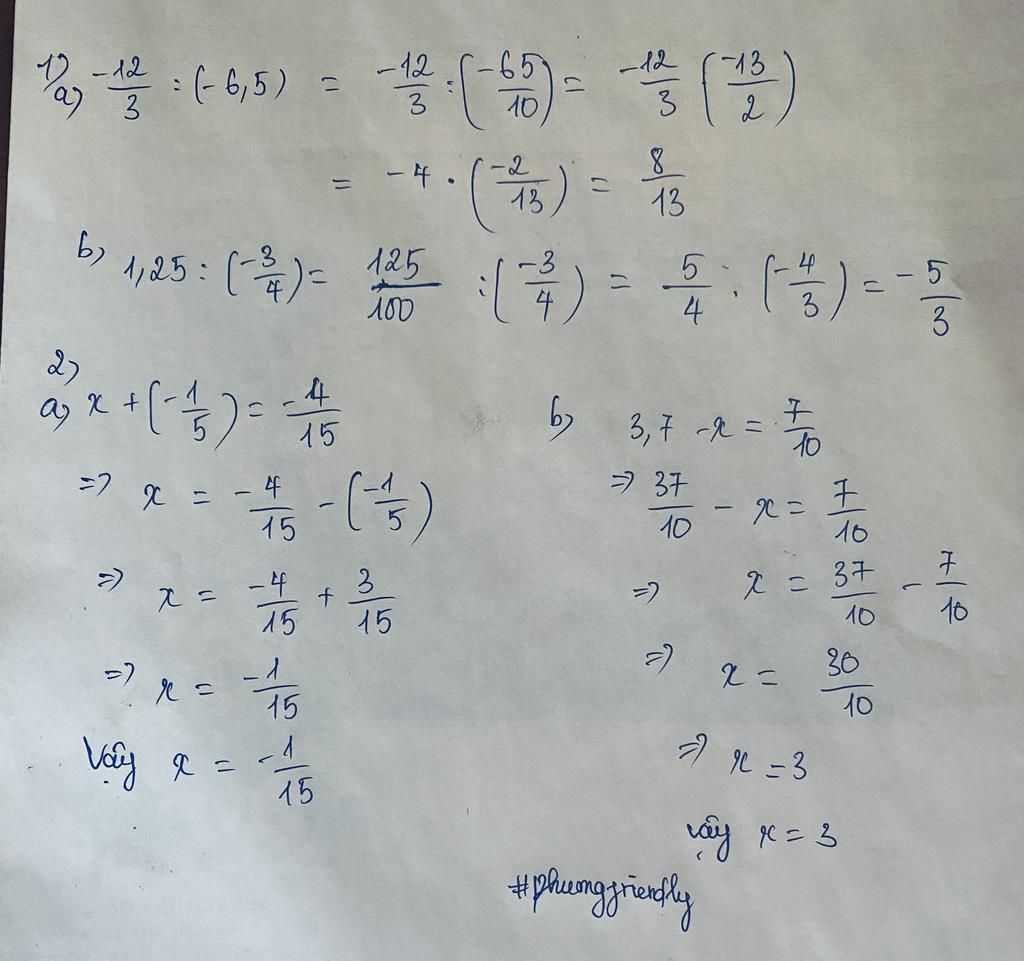 1)
a) -12/3 : (-6,5) = -12/3 : (-65/10) = -12/3 (-13/2)
= -4 . (-2/13) = 8/13
b) 1,25 : (-3/4) = 125/100 : (-3/4) = 5/4 . (-4/3) = -5/3
2)
a) x + (-1/5) = -4/15
=> x = -4/15 - (-1/5)
=> x = -4/15 + 3/15
=> x = -1/15
Vậy x = -1/15
b) 3,7 - x = 7/10
=> 37/10 - x = 7/10
=> x = 37/10 - 7/10
=> x = 30/10
=> x = 3
vậy x = 3
#phuongfriendly